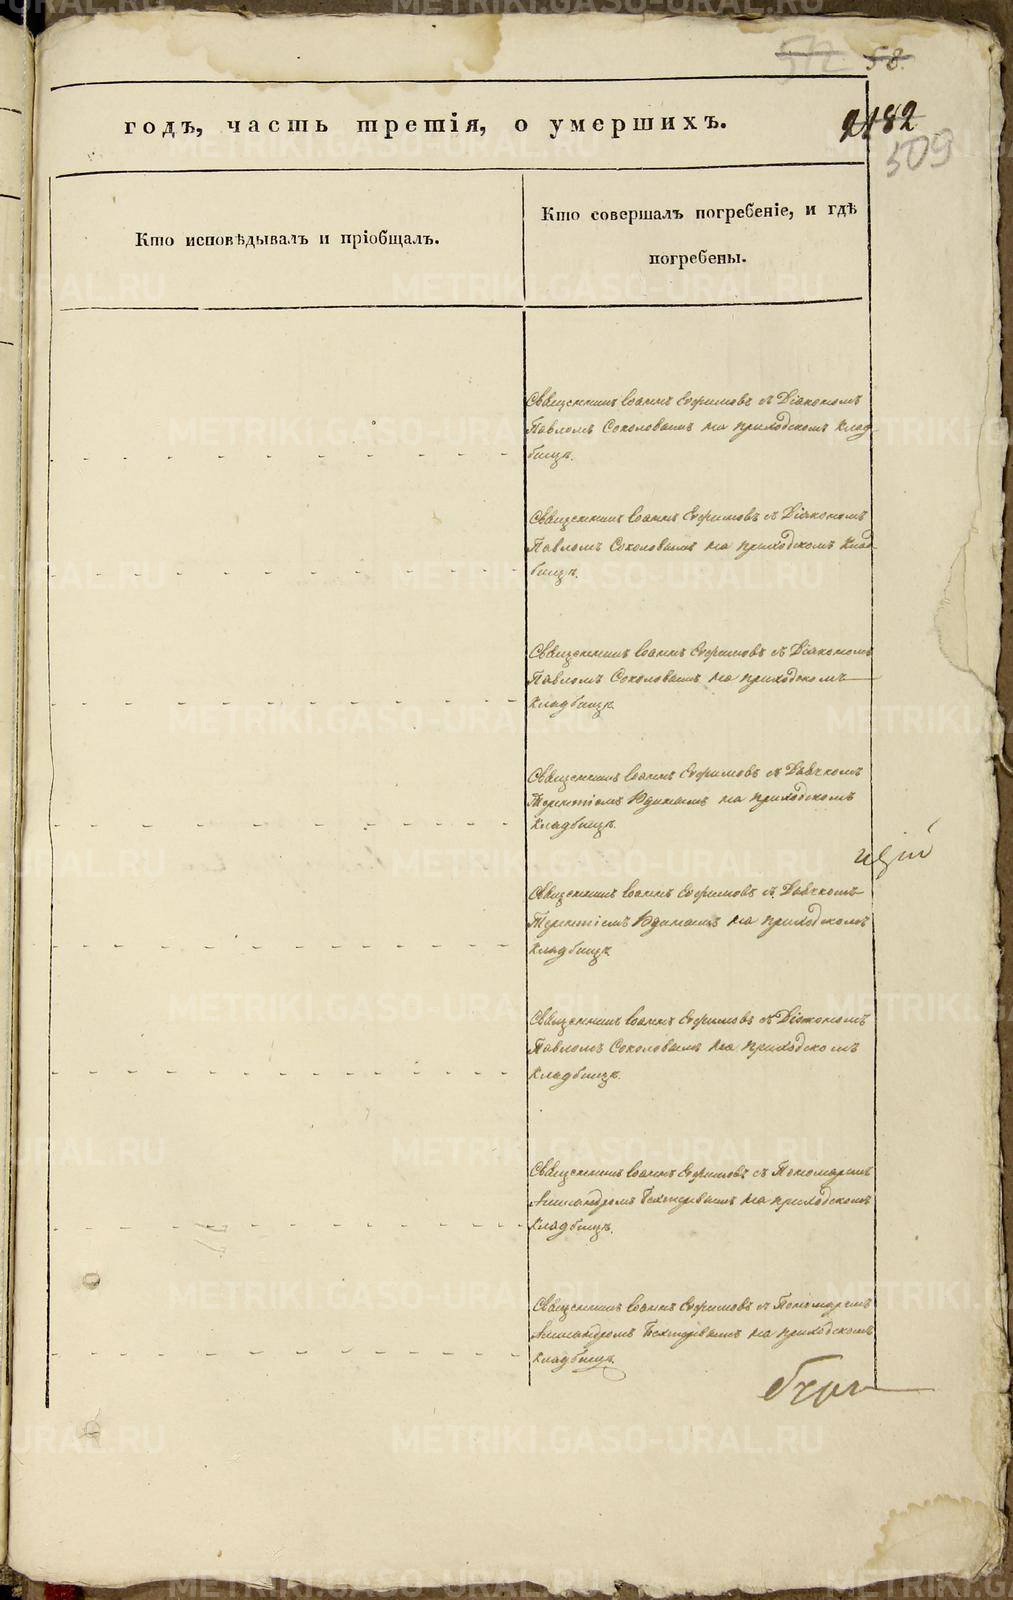 58.
годъ, часть третія, о умершихъ.
182
509
Кто исповѣдывалъ и пріобщалъ.
Кто совершалъ погребеніе, и гдѣ
погребены.
Священникъ Іоаннъ Ефимовъ съ Діакономъ
Павломъ Соколовымъ на приходскомъ клад-
бищѣ.
Священникъ Іоаннъ Ефимовъ съ Діакономъ
Павломъ Соколовымъ на приходскомъ клад-
бищѣ.
Священникъ Іоаннъ Ефимовъ съ Діакономъ
Павломъ Соколовымъ на приходскомъ
кладбищѣ.
Священникъ Іоаннъ Ефимовъ съ Дьячкомъ
Терентіемъ на приходскомъ
кладбищѣ.
Священникъ Іоаннъ Ефимовъ съ Дьячкомъ
Терентіемъ на приходскомъ
кладбищѣ
Священникъ Іоаннъ Ефимовъ съ Діакономъ
Павломъ Соколовымъ на приходскомъ
кладбищѣ.
Священникъ Іоаннъ Ефимовъ съ Пономаремъ
на приходскомъ
кладбищѣ.
Священникъ Іоаннъ Ефимовъ съ Пономаремъ
на приходскомъ
кладбищѣ.
METRIKI.GASO-URAL.RU